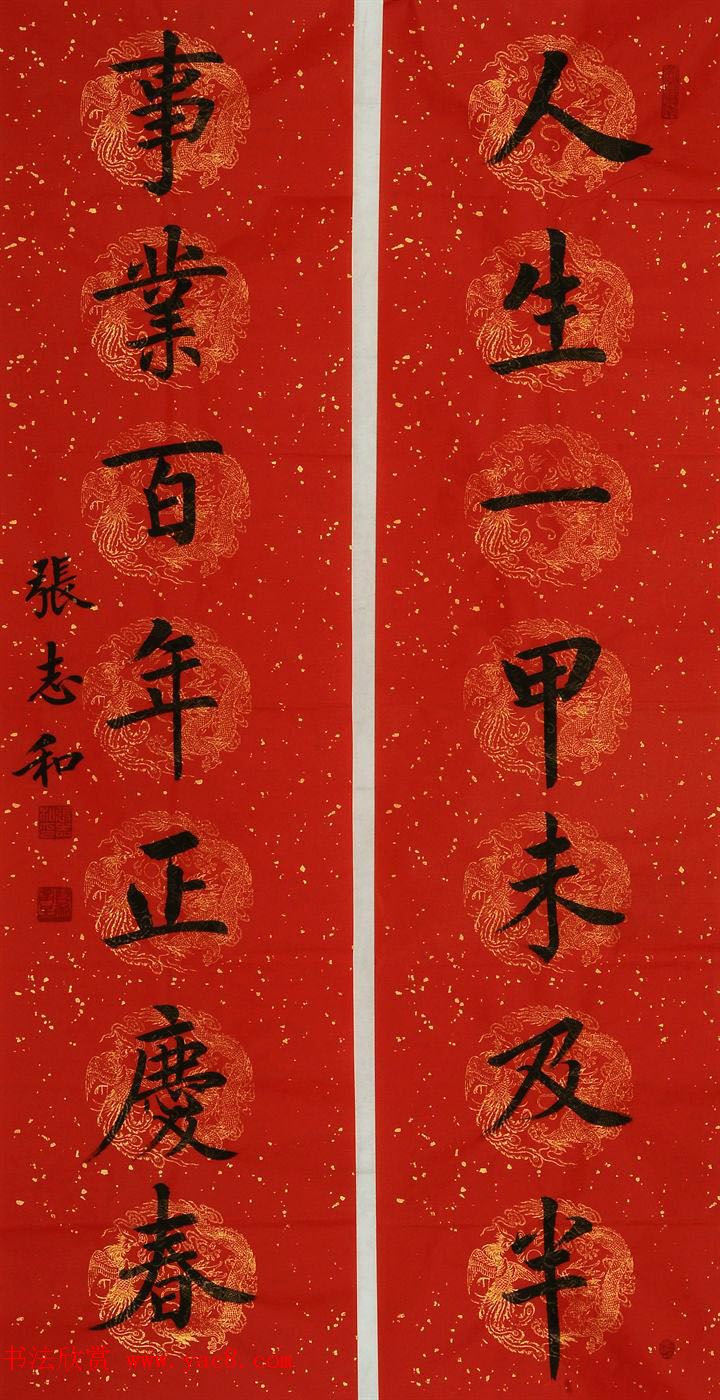 人生一甲未及半
事業百年正慶春
張志和
书法欣赏 www.yac8.com